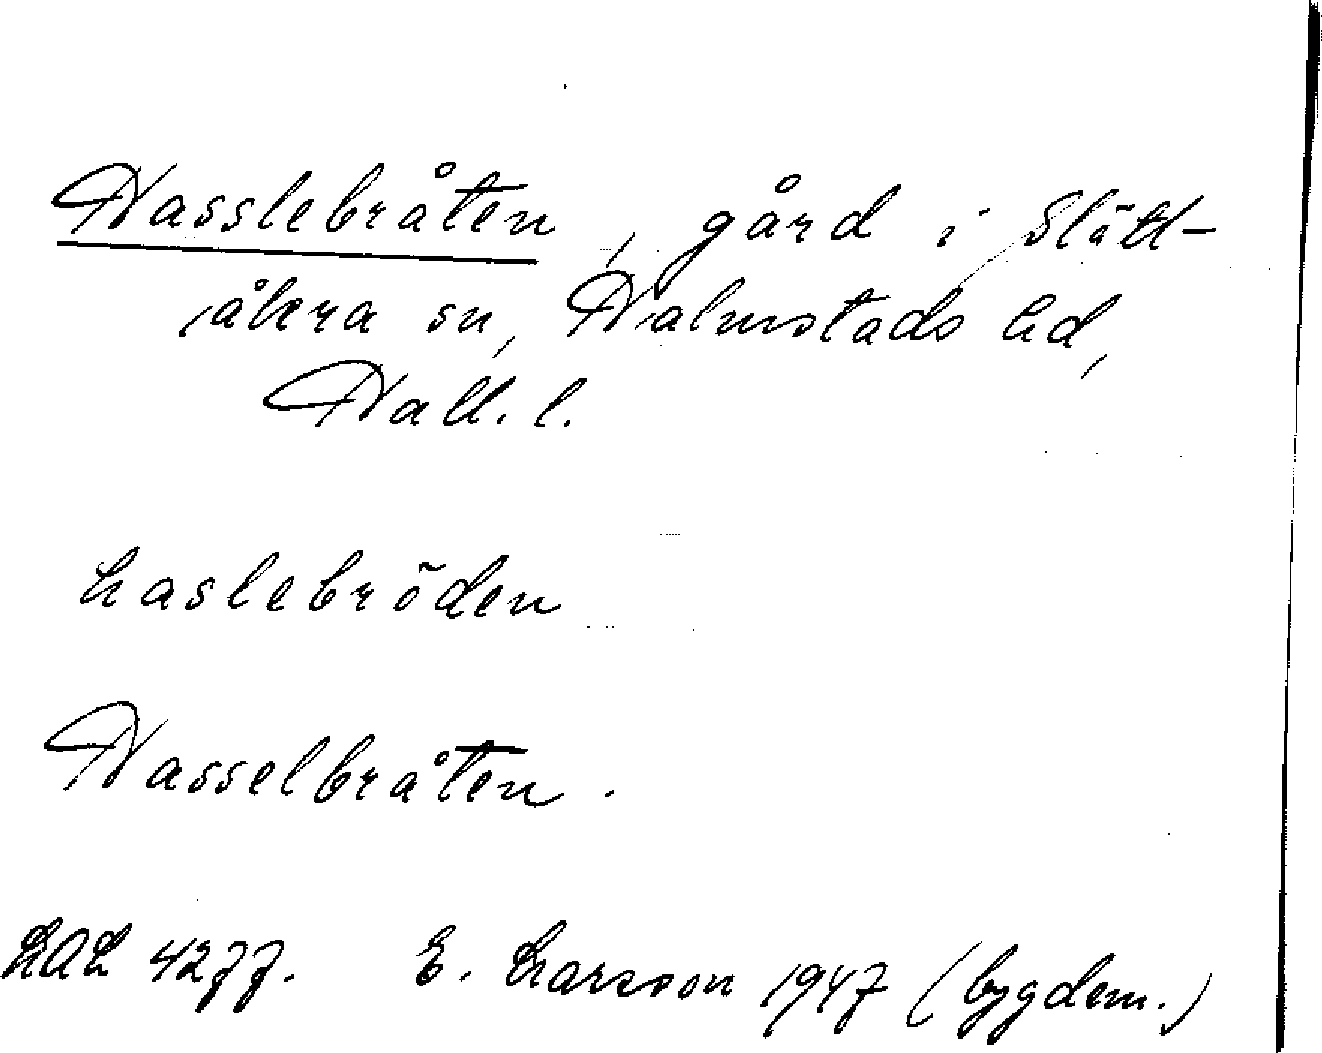 Hasslebråten, gård i Slätt-
åkra sn, Halmstads hd,
Hall. l.
haslebrõden
Hasselbråten.
LAL 4277. E. Larsson 1947 (bygdem.)